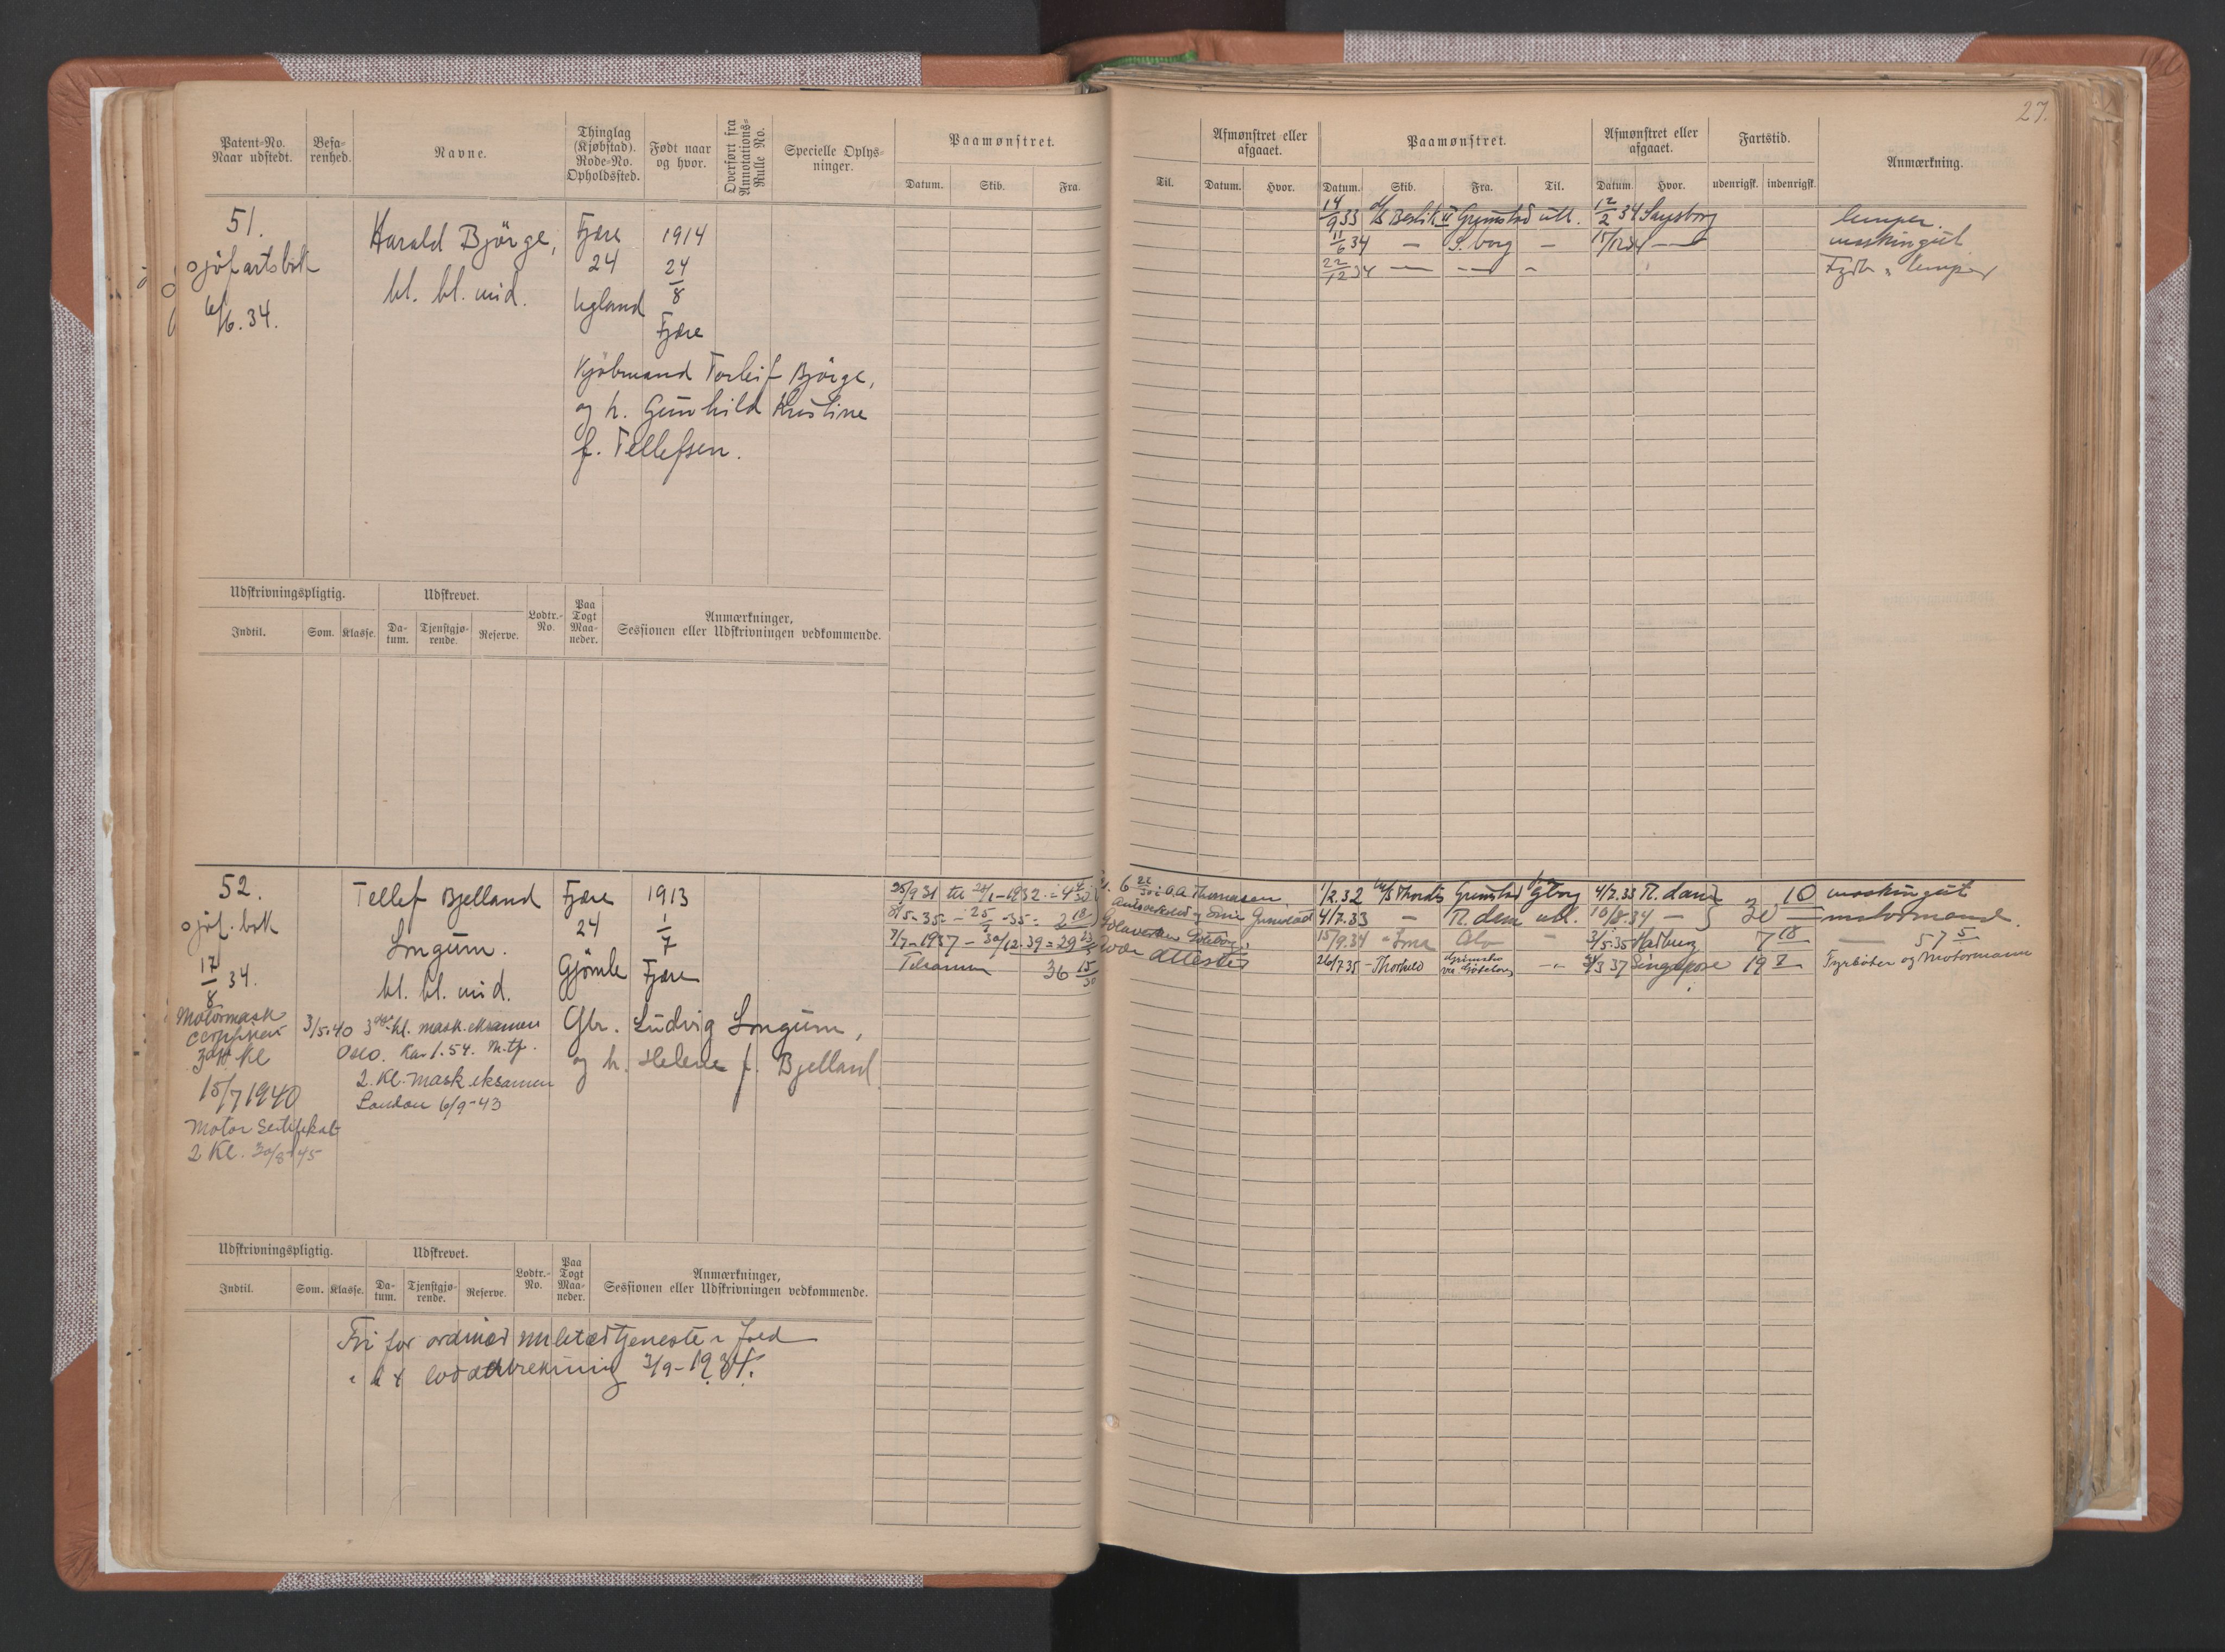 27.
Patent-No. Naar udstedt.
Befarenhed.
Navne.
Thinglag (Kjøbstad). Rode-No. Opholdssted.
Født naar og hvor.
Overført fra Annotations-Rulle No.
Specielle Oplysninger.
Paamønstret.
Datum. Skib. Fra. Til.
Afmønstret eller afgaaet.
Datum. Hvor.
Paamønstret.
Datum. Skib. Fra. Til.
Afmønstret eller afgaaet.
Datum. Hvor.
Fartstid.
udenrigsk. indenrigsk.
Anmærkning.
51.
sjöfartsbok
6/6.34.
Harald Björge,
bl. bl. mid.
Fjære
24
Ugland
1914
24/8
Fjære
Kjöbmand Torleif Björge,
og h. Gunhild Kristine
f. Tellefsen.
14/9 33 Grimstad utl. 12/2 34 lemper.
11/6 34 — S.borg — maskingut
22/12 34 — — - lemper
Udskrivningspligtig.
Indtil. Som. Klasse.
Udskrevet.
Datum. Tjenstgjørende. Reserve.
Lodtr.-No.
Paa Togt Maaneder.
Anmærkninger, Sessionen eller Udskrivningen vedkommende.
52.
sjöf. bok
17/8 34.
Motormask
3dje Kl
15/7 1940
Motor Sertifikat
2 Kl. 30/8-45
Tellef Bjelland
Longum.
bl. bl. mid.
3/5-40 3dje kl. mask. eksamen
Oslo. Kar. 1.54.
2. Kl. Mask. eksamen
London 6/9-43
Fjære
24
Gjömle
1913
1/7
Fjære
Gbr. Ludvig Longum,
og h. Helene f. Bjelland.
25/9 31 til 28/1-1932
7/7-1937 - 30/12.39 = 29
Tilsammen 36 15/30
A. Thomassen,
Grimstad
Götaverken Göteborg,
attester
1/2.32 M/S Thordis Grimstad 4/7.33 R.dam 10 maskingut
4/7.33 - R.dam utl. 10/8.34 — 30 — motormand.
15/9.34 Oslo - 3/5.35 Harburg 7 18 — 57 5
26/7.35 - Thorhild Grimstad via Göteborg -„- 3 37 Singapore 19 7 Fyrböter og Motormann
Udskrivningspligtig.
Indtil. Som. Klasse.
Udskrevet.
Datum. Tjenstgjørende. Reserve.
Lodtr.-No.
Paa Togt Maaneder.
Anmærkninger, Sessionen eller Udskrivningen vedkommende.
Fri for ordinær militærtjeneste i fred
loddtrekning 3/9-1934.